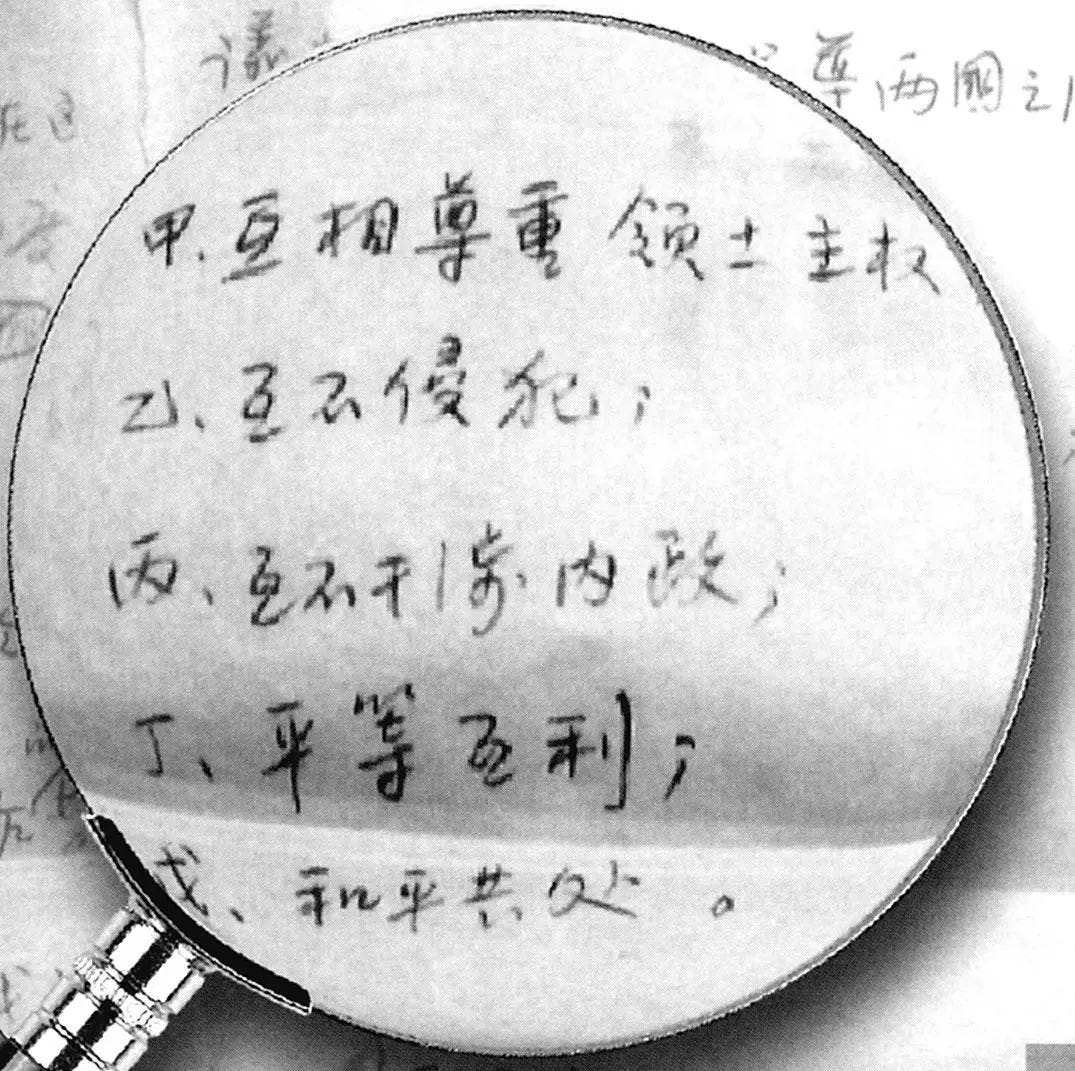 議 導兩國之
甲、互相尊重領土主权
乙、互不侵犯；
丙、互不干涉内政；
丁、平等互利；
戊、和平共处。